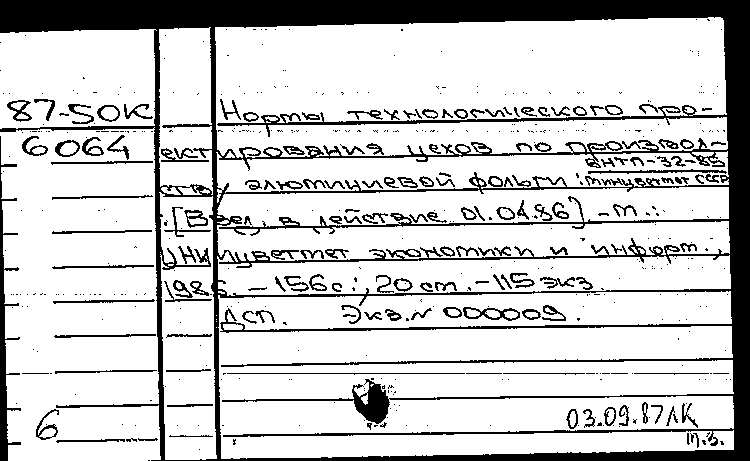 87-50К Нормы технологического про-
6064 ектирования цехов по производ-
ству алюминиевой фольги: ВНТП-32-85
Минцветмет СССР
: [Введ. в действие 01.04.86] - М.:
ЦНИИцветмет экономики и информ.,
1986. - 156с.; 20 см. - 115 экз.
ДСП. Экз. № 000009.
6
03.09.87 ЛК
т.з.